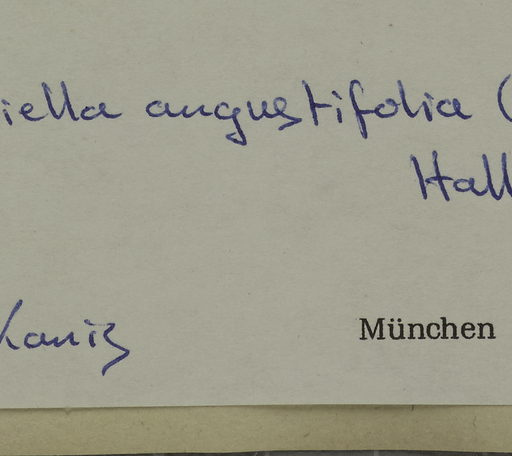 iella angustifolia (
Hall
Kaniz
München